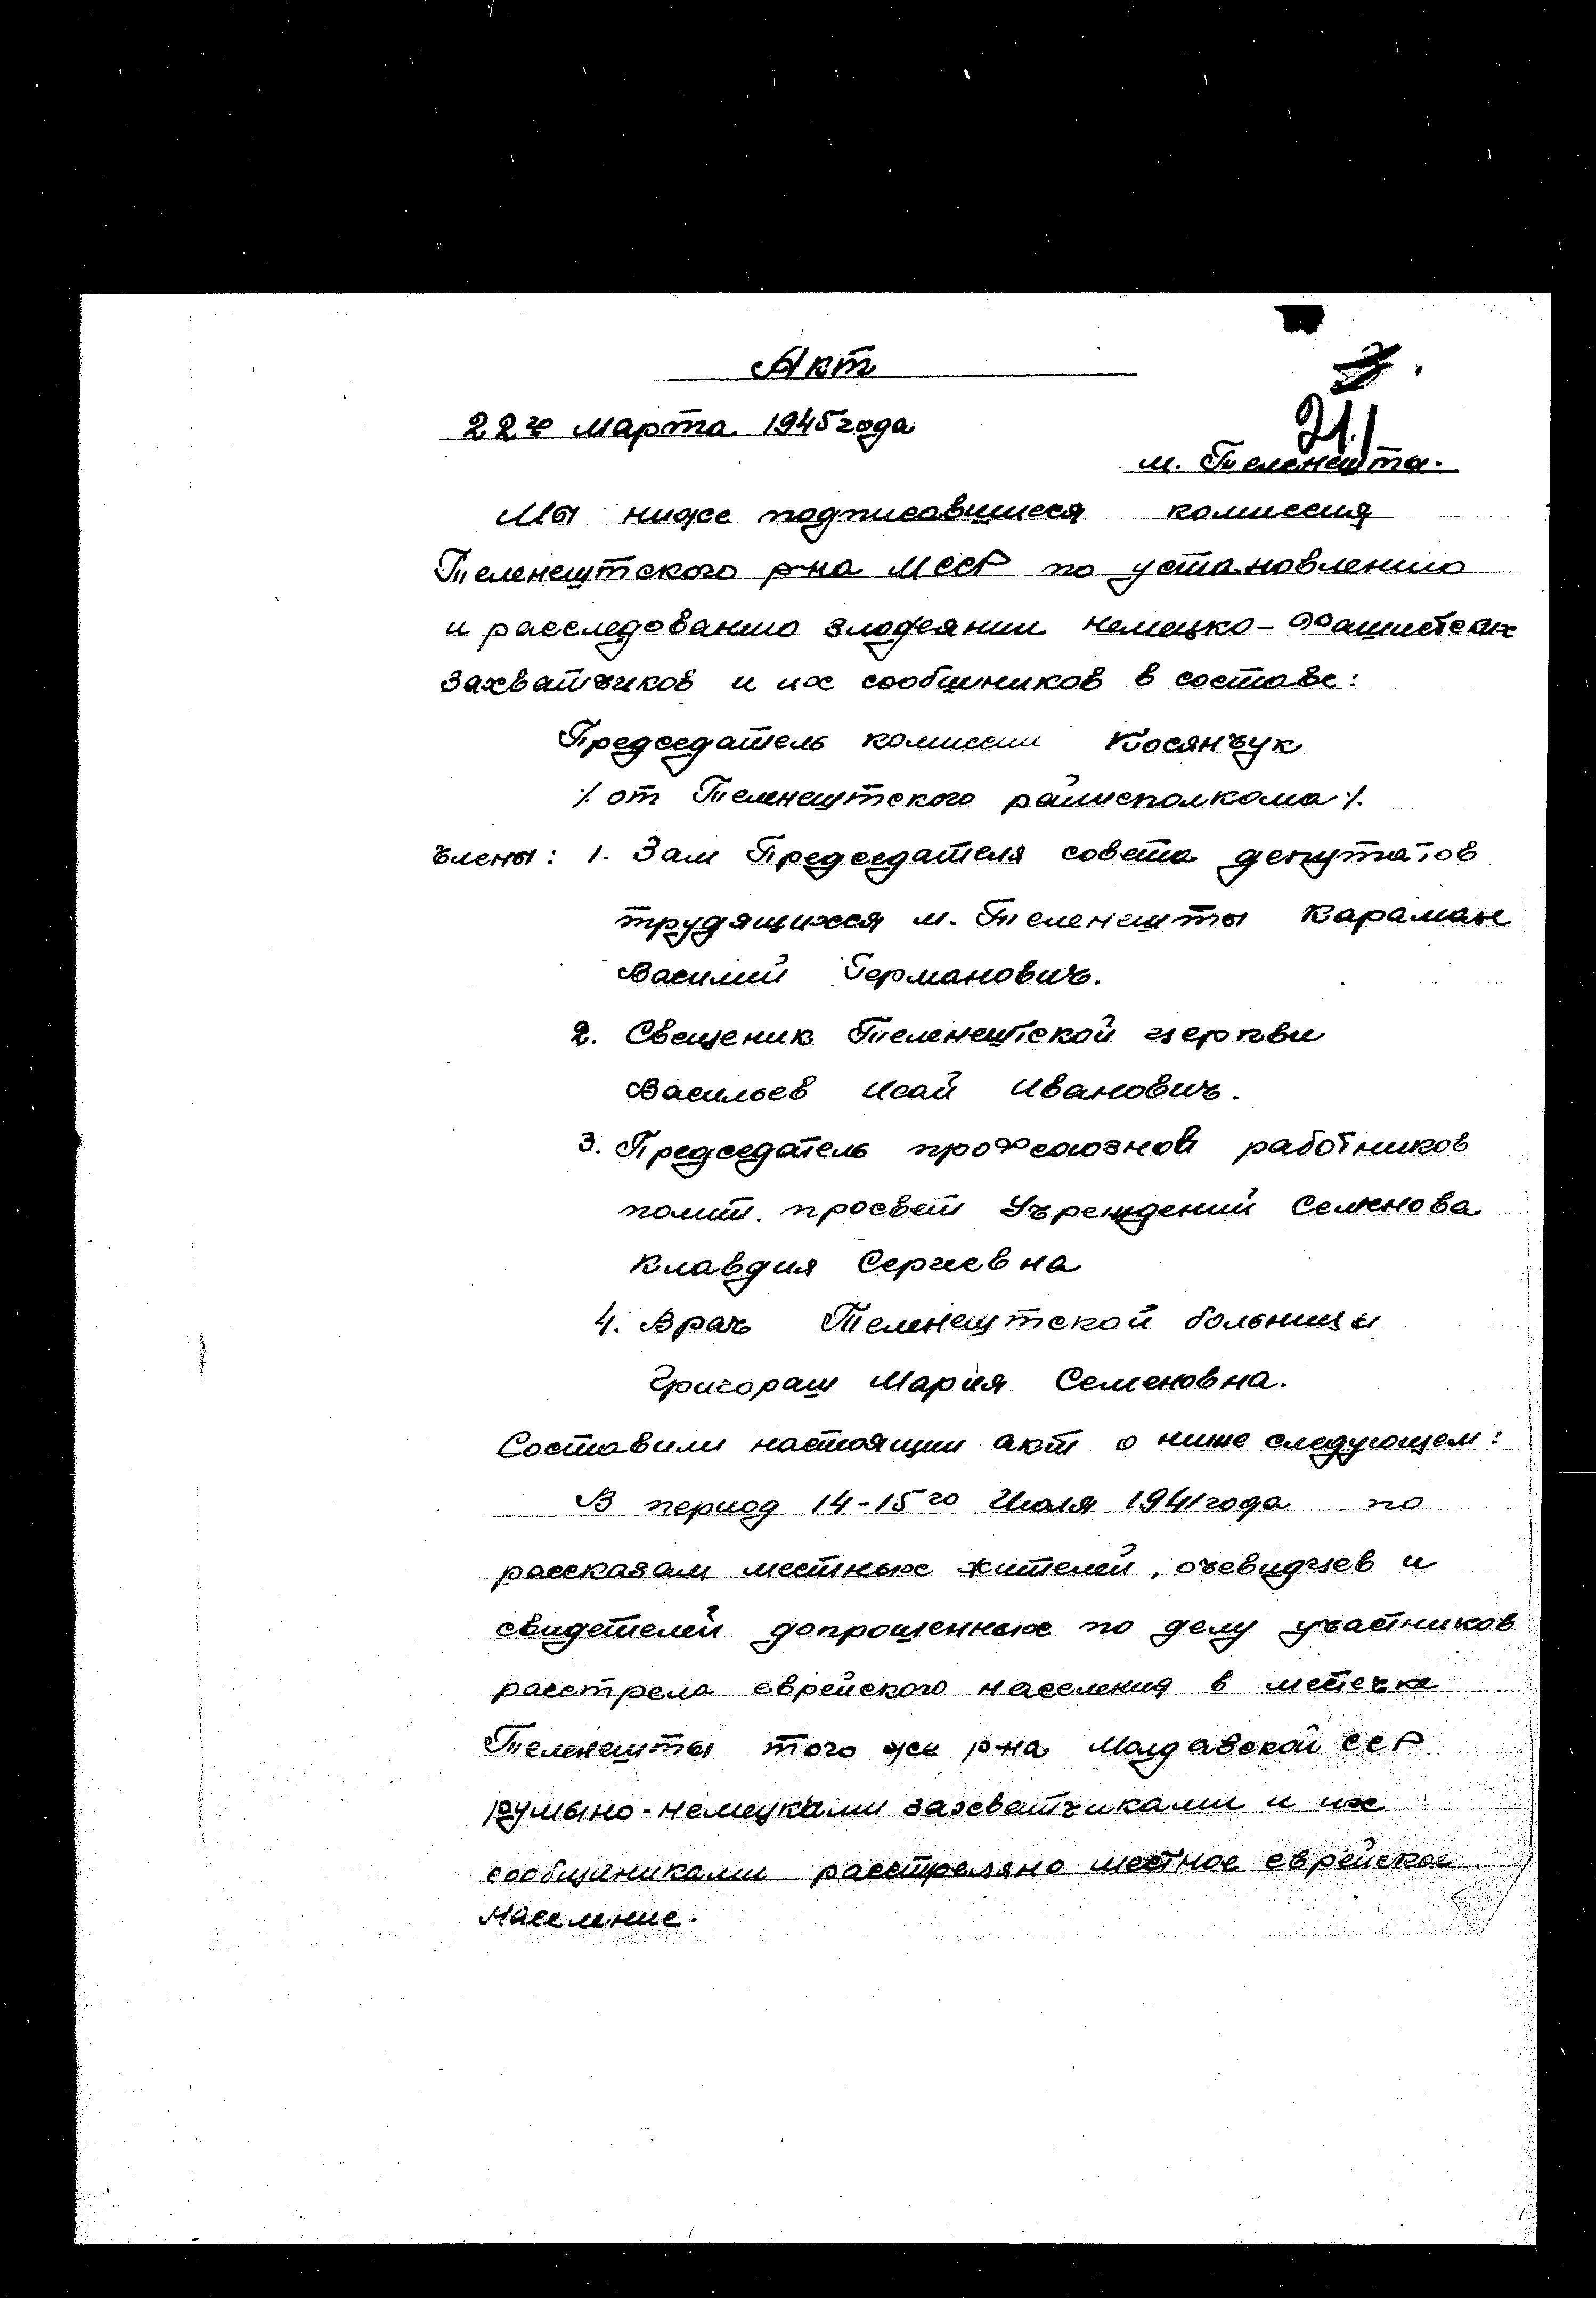 Акт
22го марта 1945 года
21.
м. Теленешта.
Мы ниже подписавшиеся комиссия
Теленештского р-на МССР по установлению
и расследованию злодеянии немецко-фашистских
захватчиков и их сообщников в составе:
Председатель комиссии Косянчук
/. от Теленештского райисполкома /.
члены: 1. Зам Председателя совета депутатов
трудящихся м. Теленешты Караман
Василий Германович.
2. Свещеник Теленештской церкви
Васильев Исай Иванович.
3. Председатель профсоюзнов работников
полит. просвет Учреждений Семенова
Клавдия Сергиевна
4. Врач Теленештской больницы
Григораш Мария Семеновна.
Составили настоящии акт о ниже следующем:
В период 14-15го Июля 1941 года по
рассказам местных жителей, очевидцев и
свидетелей допрошенных по делу участников
расстрела еврейского населения в местечке
Теленешты того же р-на Молдавской ССР
румыно-немецкими захватчиками и их
сообщниками расстреляно местное еврейское
население.